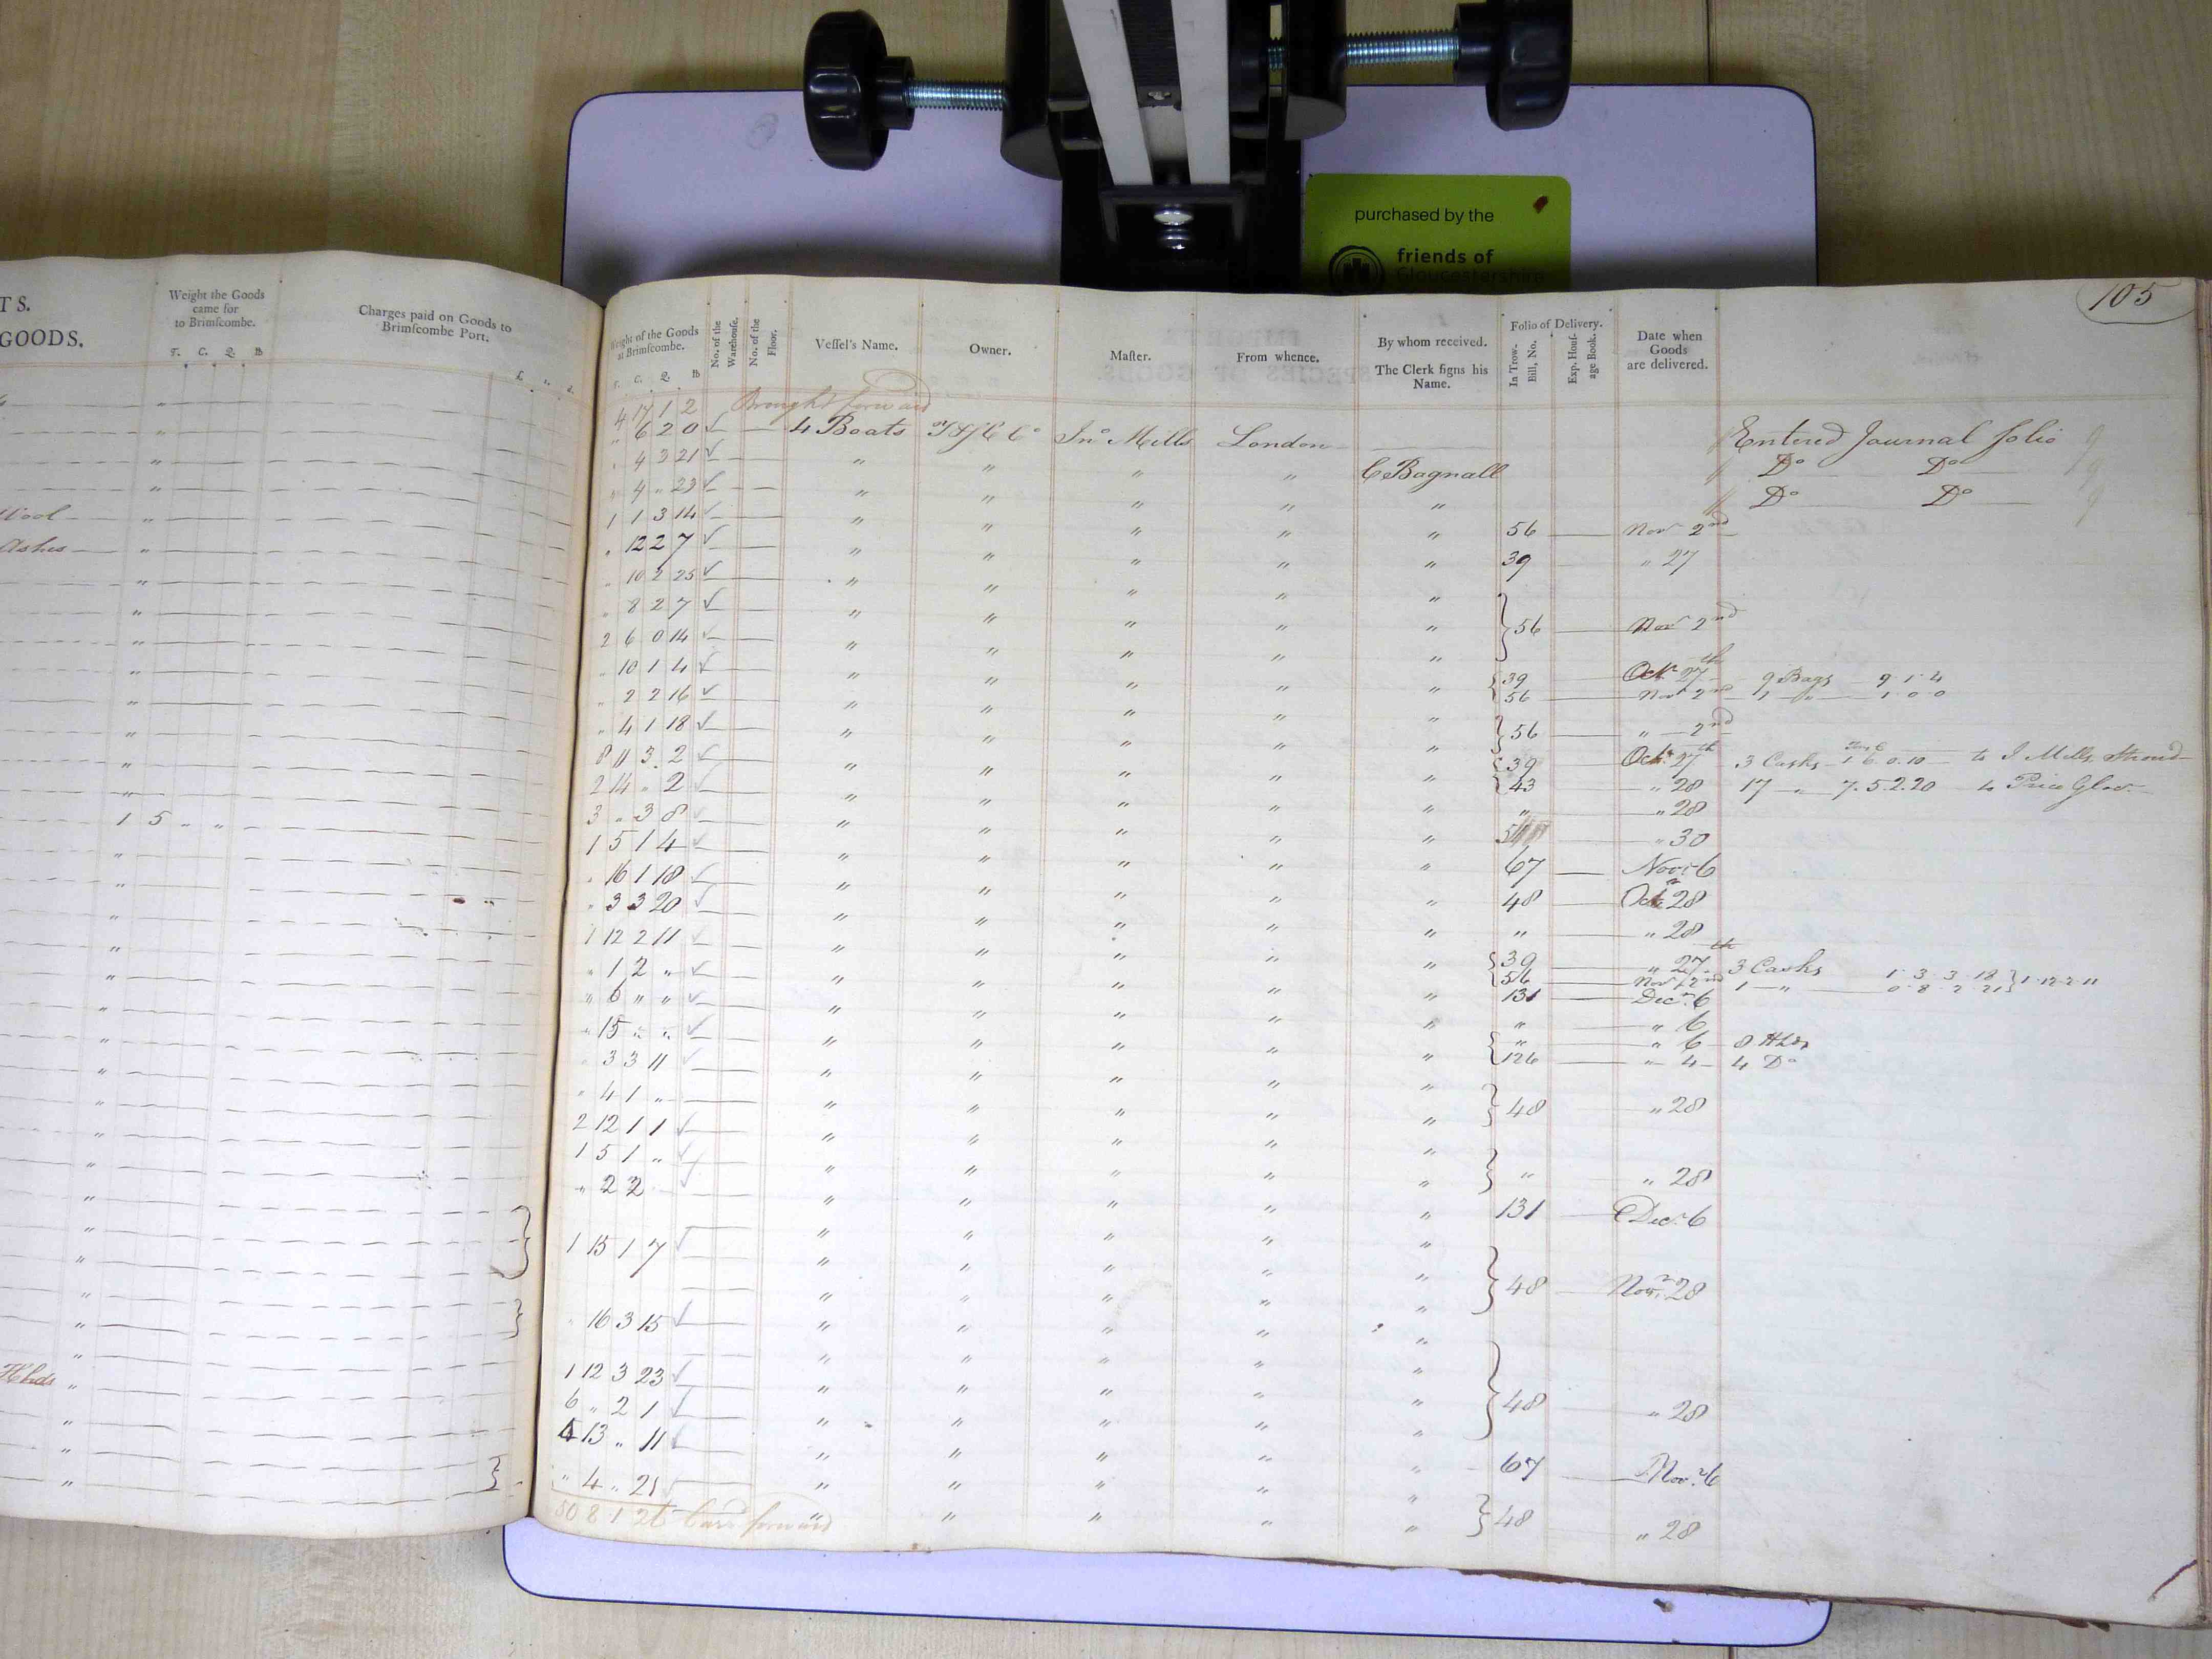 purchased by the
friends of
Gloucestershire
TS.
GOODS.
Weight the Goods
came for
to Brimſcombe.
T. C. Q. lb
Charges paid on Goods to
Brimſcombe Port.
£ s. d.
Wool
Ashes
1 5 " "
Hhds
105
Weight of the Goods
at Brimſcombe.
T. C. Q. lb
No. of the
Warehouſe.
No. of the
Floor.
Veſſel's Name.
Owner.
Maſter.
From whence.
By whom received.
The Clerk ſigns his
Name.
Folio of Delivery.
In Trow-
Bill, No.
Exp. Houſ-
age Book.
Date when
Goods
are delivered.
4 17 1 2 Brought forward
" 6 2 0 4 Boats Jno Mills London Entered Journal folio 9
" 4 3 21 " " " " C Bagnall Do Do 9
" 4 " 23 " " " " " Do Do 9
1 1 3 14 " " " " " 56 Nov 2nd
" 12 2 7 " " " " " 39 " 27
" 10 2 25 " " " " "
" 8 2 7 " " " " " } 56 Nov 2nd
2 6 0 14 " " " " "
" 10 1 4 " " " " " { 39 Oct 27th 9 Bags 9 1 4
56 Nov 2nd 1 " 1 0 0
" 2 2 16 " " " " " } 56 " 2nd
" 4 1 18 " " " " "
8 11 3 2 " " " " " { 39 Oct 27th 3 Casks 1 6 0 10 to J Mills Stroud
43 " 28 17 " 7. 5. 2. 20 to Price Glo
2 14 " 2 " " " " " " " 28
3 " 3 8 " " " " " " 30
1 5 1 4 " " " " " 67 Novr 6
" 16 1 18 " " " " " 48 Oct 28
" 3 3 20 " " " " " " " 28
1 12 2 11 " " " " " { 39 " 27th 3 Casks 1 3 3 18 } 1 12 2 11
56 Nov 2nd 1 " 0 8 2 21
" 1 2 " " " " " " 131 Decr 6
" 6 " " " " " " " " " 6
" 15 " " " " " " " { " " 6 8 Hhds
126 " 4 4 Do
" 3 3 11 " " " " " } 48 " 28
" 4 1 " " " " " "
2 12 1 1 " " " " " } " " 28
1 5 1 " " " " " "
" 2 2 " " " " " 131 Decr 6
1 15 1 7 " " " " " } 48 Novr 28
" 16 3 15 " " " " "
1 12 3 23 " " " " " } 48 " 28
6 " 2 1 " " " " "
4 13 " 11 " " " " " 67 Novr 6
" 4 " 21 " " " " " } 48 " 28
50 8 1 26 Card forward